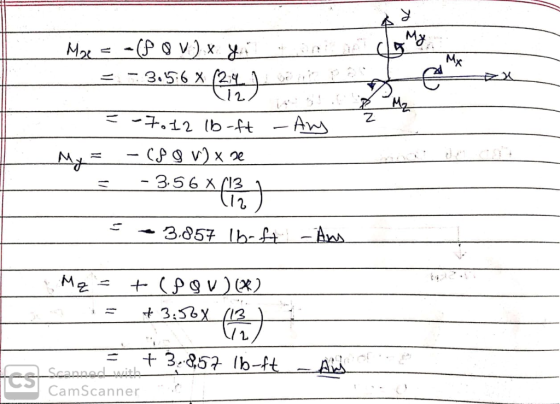 Mx = -(ρQV) x y
= - 3.56 x (24/12)
= -7.12 lb-ft - Ans
My = - (ρQV) x x
= - 3.56 x (13/12)
= - 3.857 lb-ft - Ans
Mz = + (ρQV)(x)
= + 3.56 x (13/12)
= + 3.857 lb-ft - Ans
y
My
Mx
x
Mz
z
CS Scanned with
CamScanner